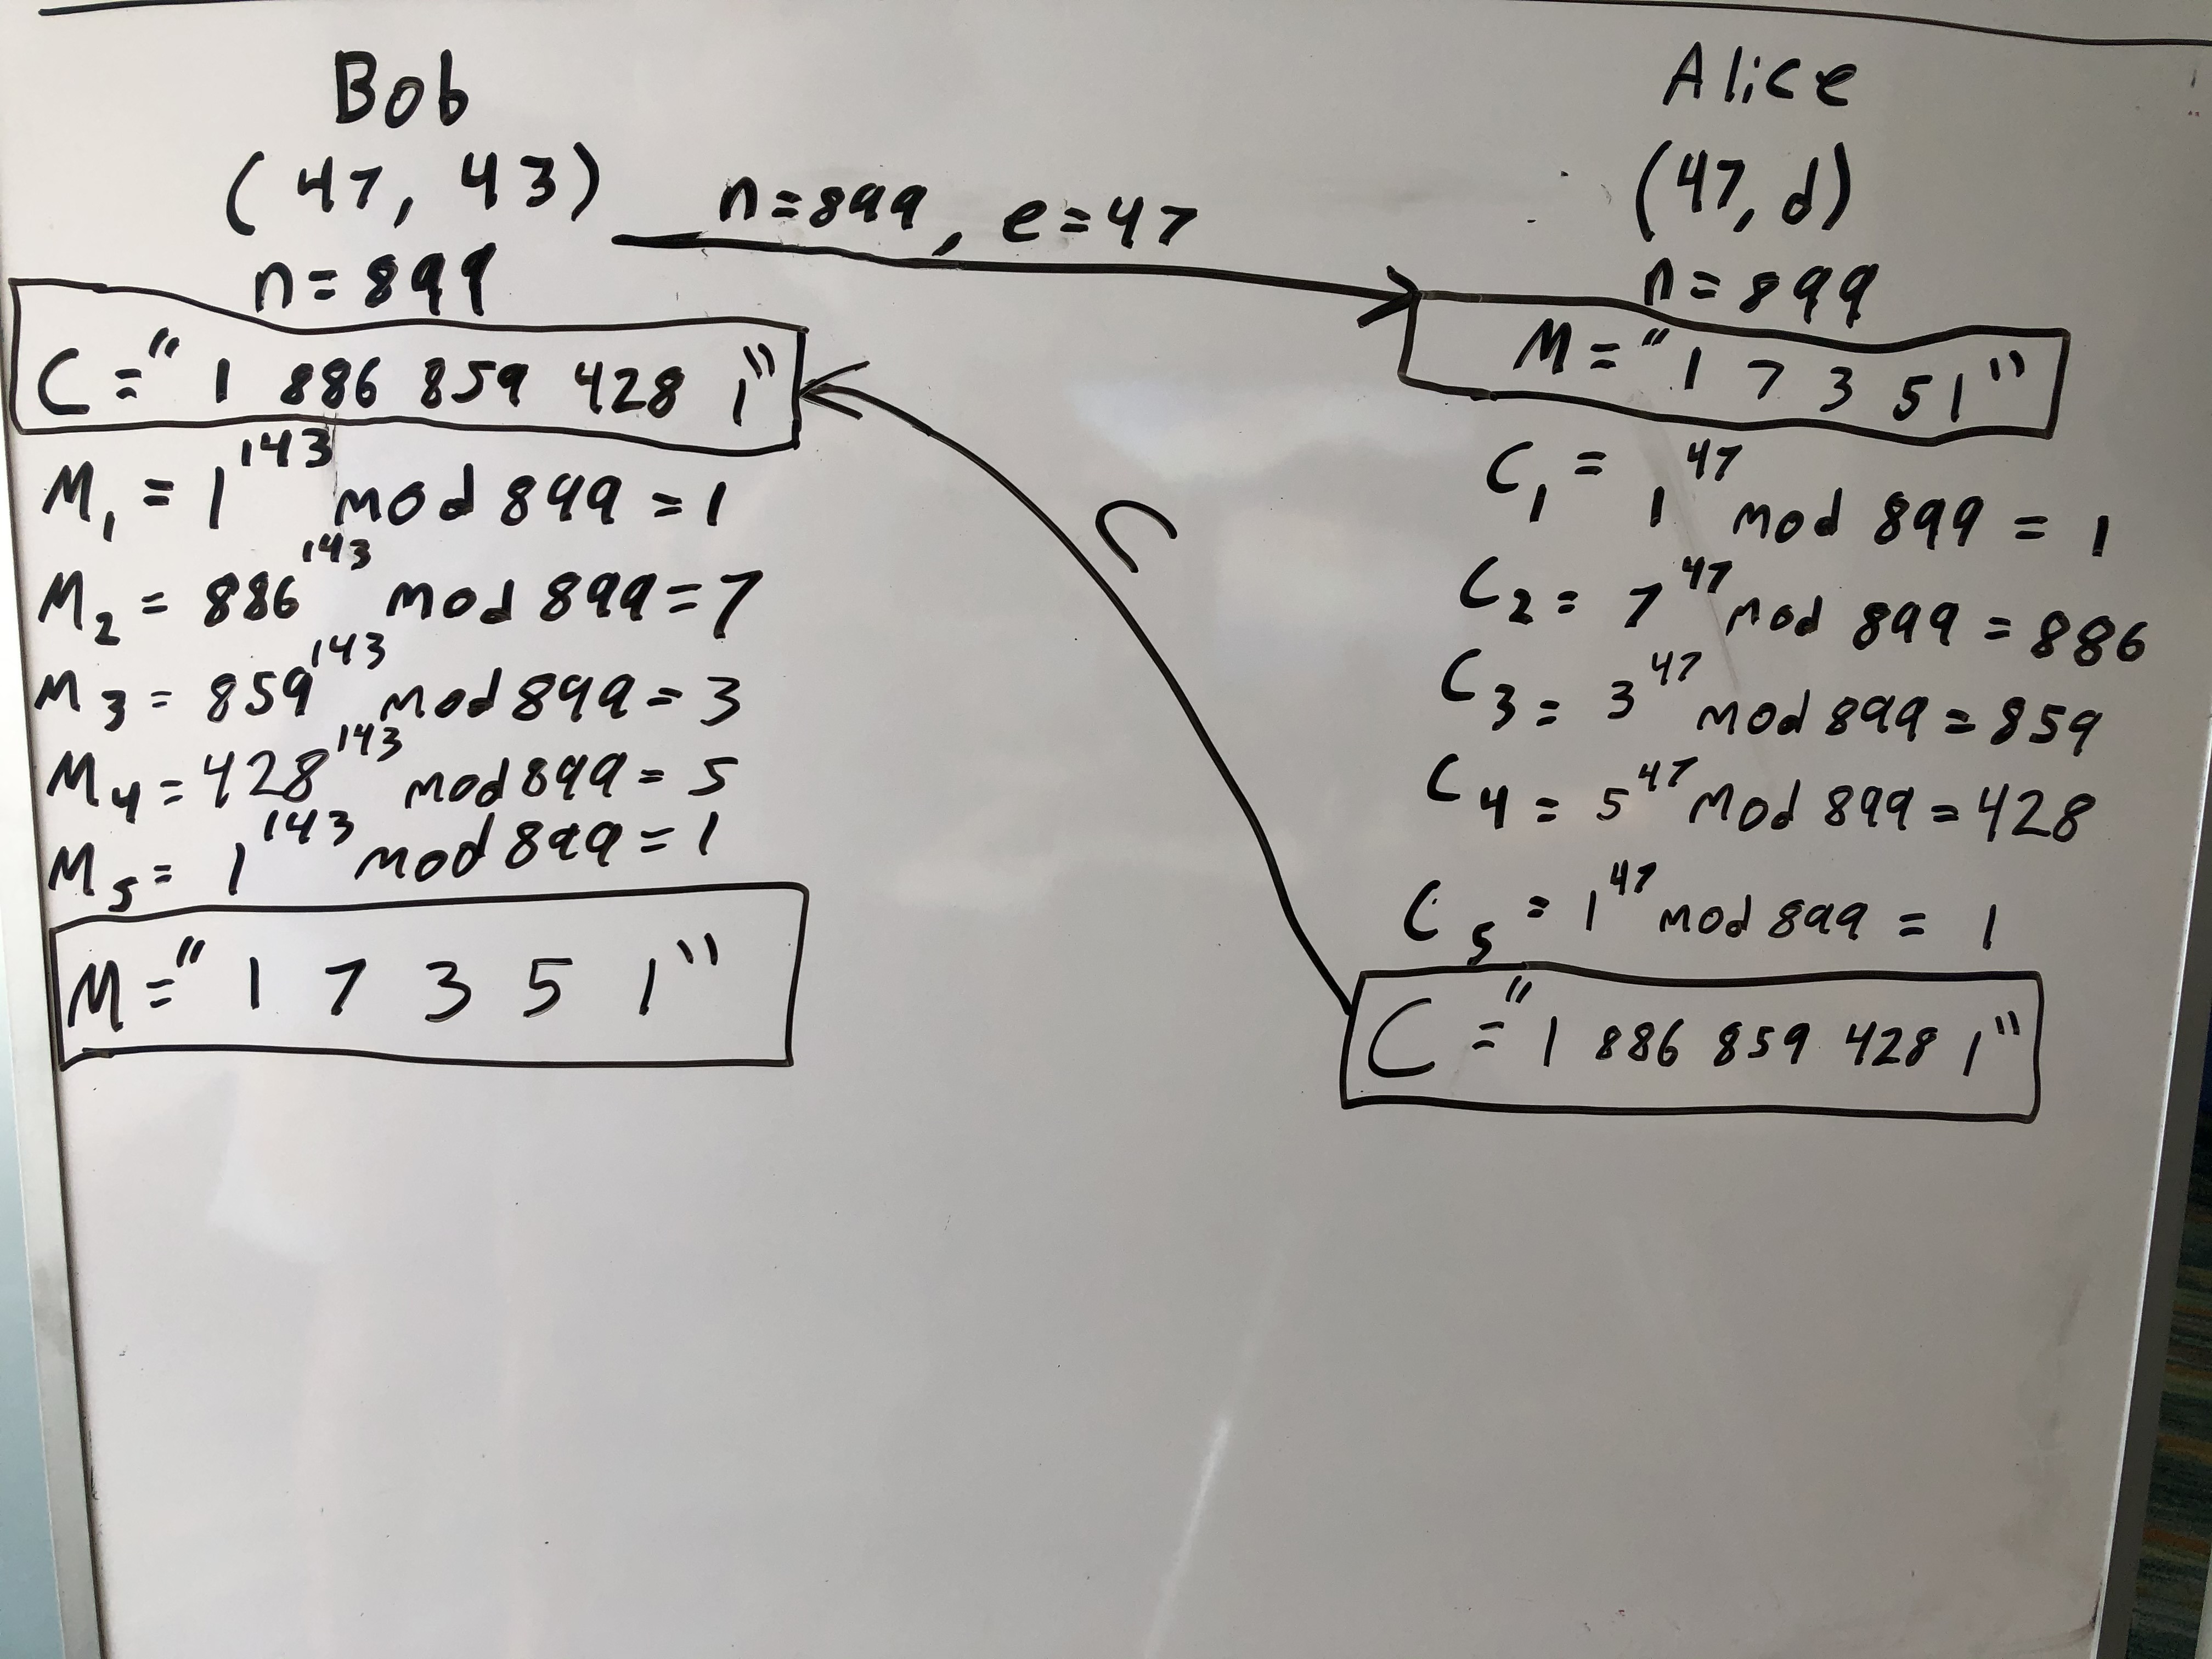 Bob
(47, 43)
n=899
C="1 886 859 428 1"
M₁ = 1¹⁴³ mod 899 = 1
M₂ = 886¹⁴³ mod 899 = 7
M₃ = 859¹⁴³ mod 899 = 3
M₄ = 428¹⁴³ mod 899 = 5
M₅ = 1¹⁴³ mod 899 = 1
M="1 7 3 5 1"
n=899, e=47
C
Alice
(47, d)
n=899
M="1 7 3 5 1"
C₁ = 1⁴⁷ mod 899 = 1
C₂ = 7⁴⁷ mod 899 = 886
C₃ = 3⁴⁷ mod 899 = 859
C₄ = 5⁴⁷ mod 899 = 428
C₅ = 1⁴⁷ mod 899 = 1
C="1 886 859 428 1"